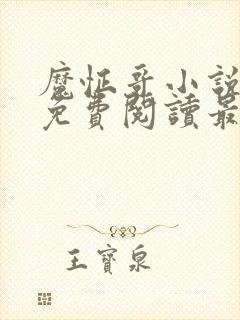 魔怔哥小說
免費閱讀最
王寶泉